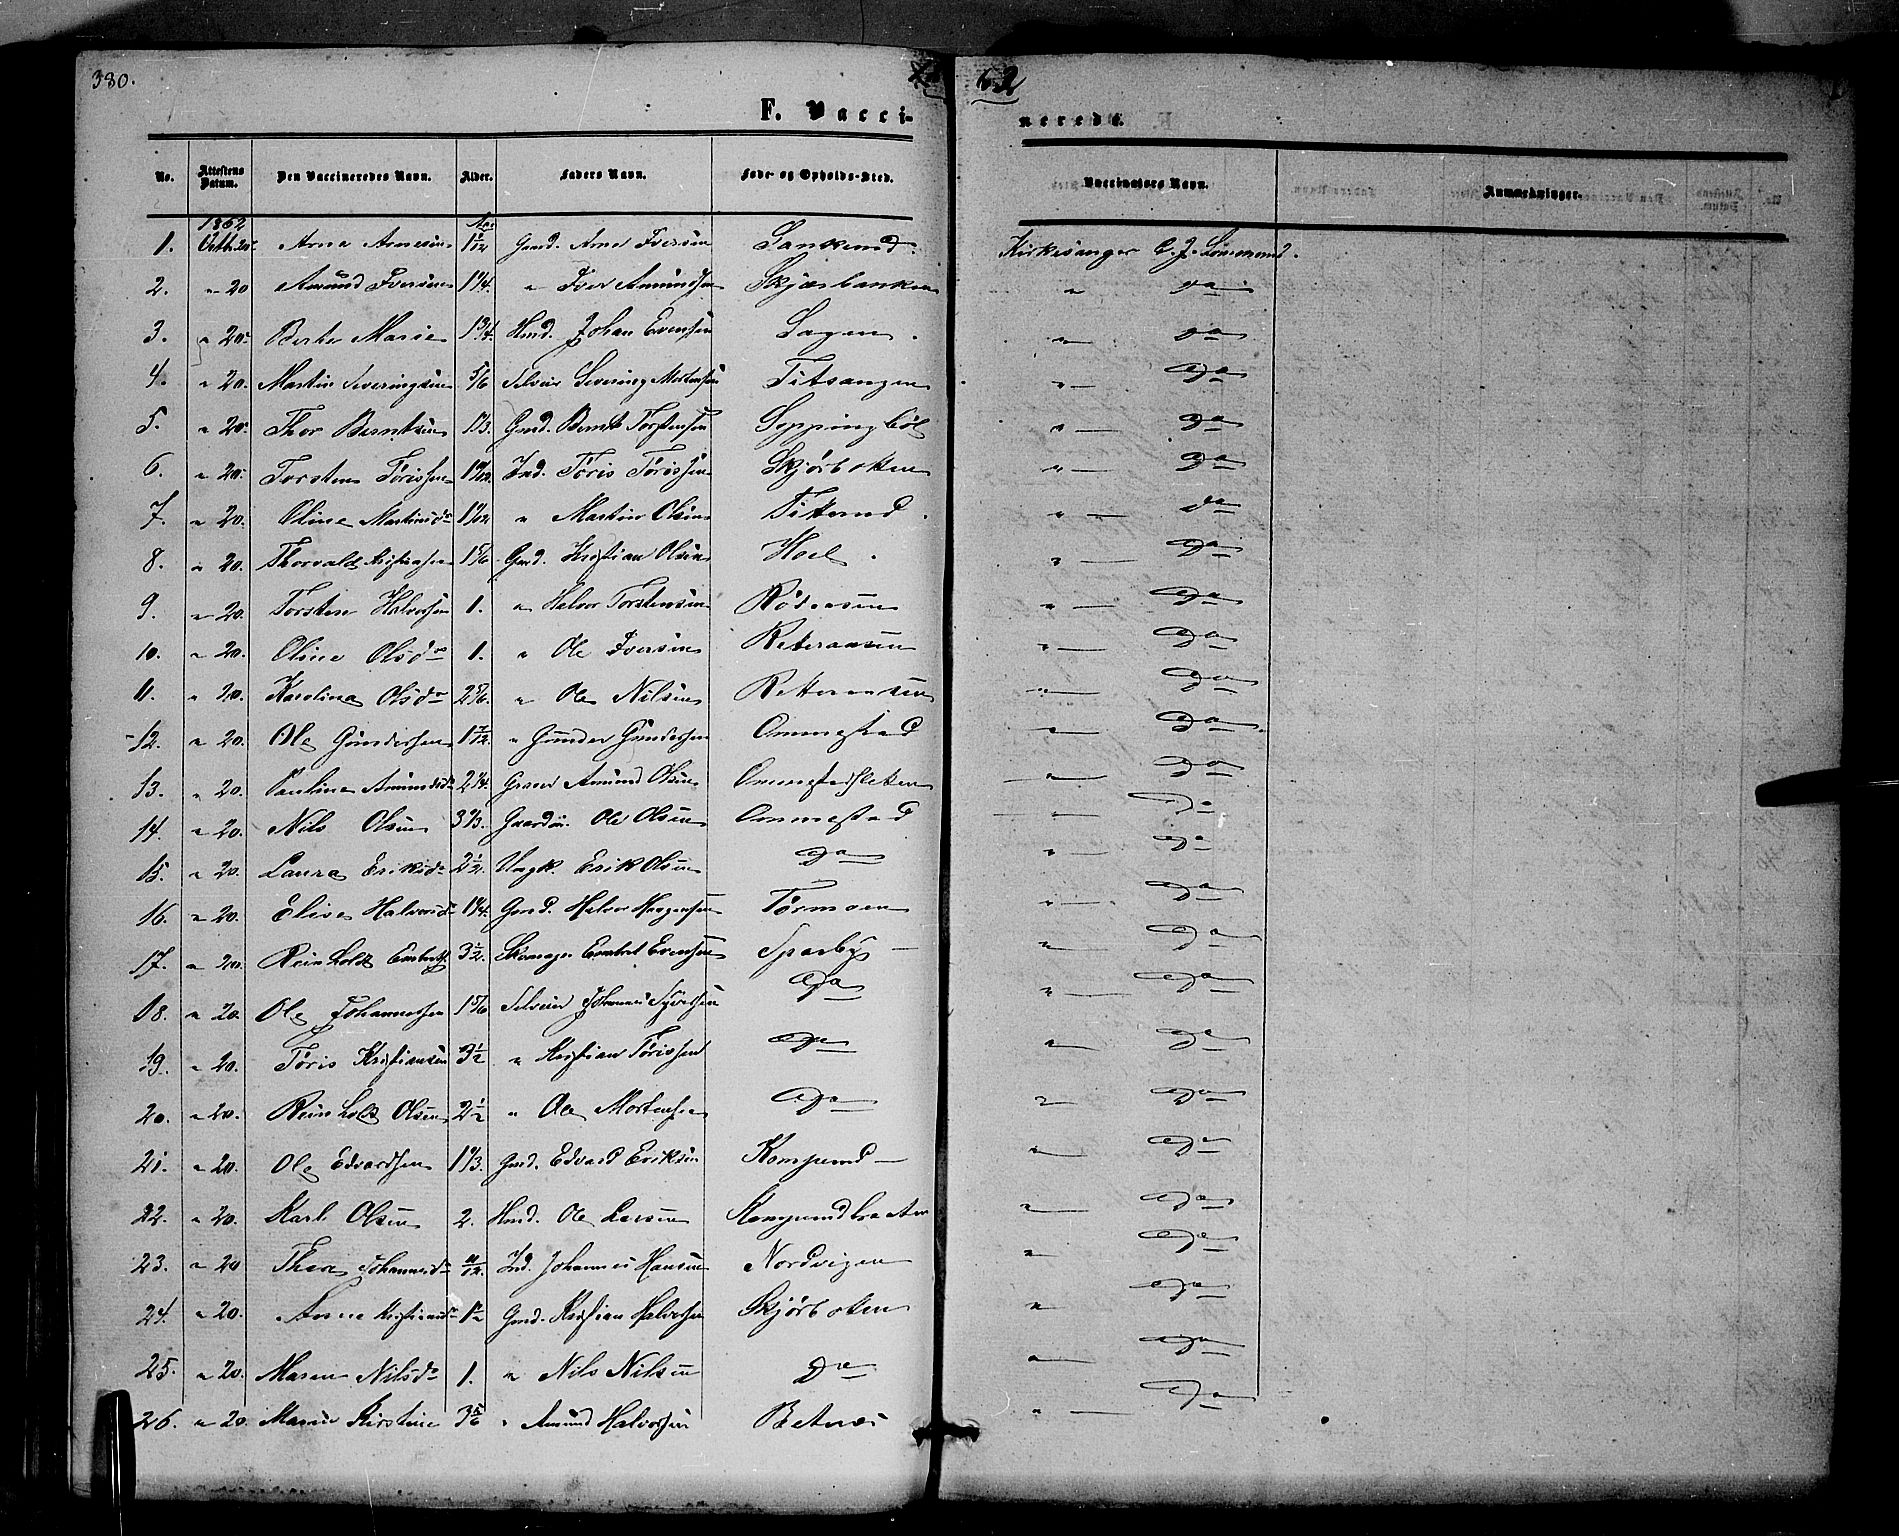 380.
62
F. Vacci-
nerede.
No. Attestens Datum. Den Vaccineredes Navn. Alder. Faders Navn. Føde- og Opholds-Sted. Vaccinators Navn. Anmærkninger.
1862
1. 20. Arne Arnesen Gmd. Arne Iversen Kirkesanger
2. " 20 Amund Iversen 1 1/4. " Iver Amundsen Skjæsbanken " Do
3. " 20. Berte Marie 1 3/4. Hmd. Johan Evensen Sagen. " Do
4. " 20. Martin Severingsen 5/6 Selveier Severing Mortensen " Do
5. " 20. Thor Berntsen 1 1/3. Gmd. Bernt Torstensen Soppingbøl " Do
6. " 20. Torsten Törissen Ind. Töris Törissen Skjörbotten " Do
7. " 20. Oline Martinsd. " Martin Olsen " Do
8. " 20. Thorvald Kristiansen 1 5/6 Gmd. Kristian Olsen Hoel. " Do
9. " 20. Torsten Halvorsen 1. " Halvor Torstensen " Do
10. " 20. Oline Olsd. 1. " Ole Iversen " Do
11. " 20. Karolina Olsd. 2 5/6. " Ole Nilsen " Do
12. " 20. Ole Gundersen 1 7/12. " Gunder Gundersen Ommestad " Do
13. " 20. Pauline Amundsd. 2 1/4. Amund Olsen Ommestadfletten " Do
14. " 20. Nils Olsen 3 1/3. Gaardm. Ole Olsen Ommestad " Do
15. " 20. Laura Eriksd. 2 1/2. Ungk. Erik Olsen Do " Do
16. " 20. Elise Halvorsd. 1 1/4. Gmd. Halvor Haagensen Törmoen " Do
17. " 20. Reinholdt Embretsen 3 1/2. Skomager Embret Evensen Sparby " Do
18. " 20. Ole Johannessen 1 5/6 Selveier Johannes Syversen Do " Do
19. " 20. Töris Kristiansen 3 1/2 " Kristian Törissen Do " Do
20. " 20. Reinholdt Olsen 2 1/2 " Ole Mortensen Do " Do
21. " 20. Ole Edvardsen 1 1/3. Gmd. Edvard Eriksen Kompund " Do
22. " 20. Karl Olsen 2. Hmd. Ole Larsen Kompundbraaten " Do
23. " 20 Thea Johannesd. 11/12. Ind. Johannes Hansen Nordvigen " Do
24. " 20. Anne Kristiansd. Gmd. Kristian Halvorsen Skjörbotten " Do
25. " 20. Maren Nilsd. 1. " Nils Nilsen Do " Do
26. " 20 Maren Kirstine 3 5/6 " Amund Halvorsen Betnes " Do